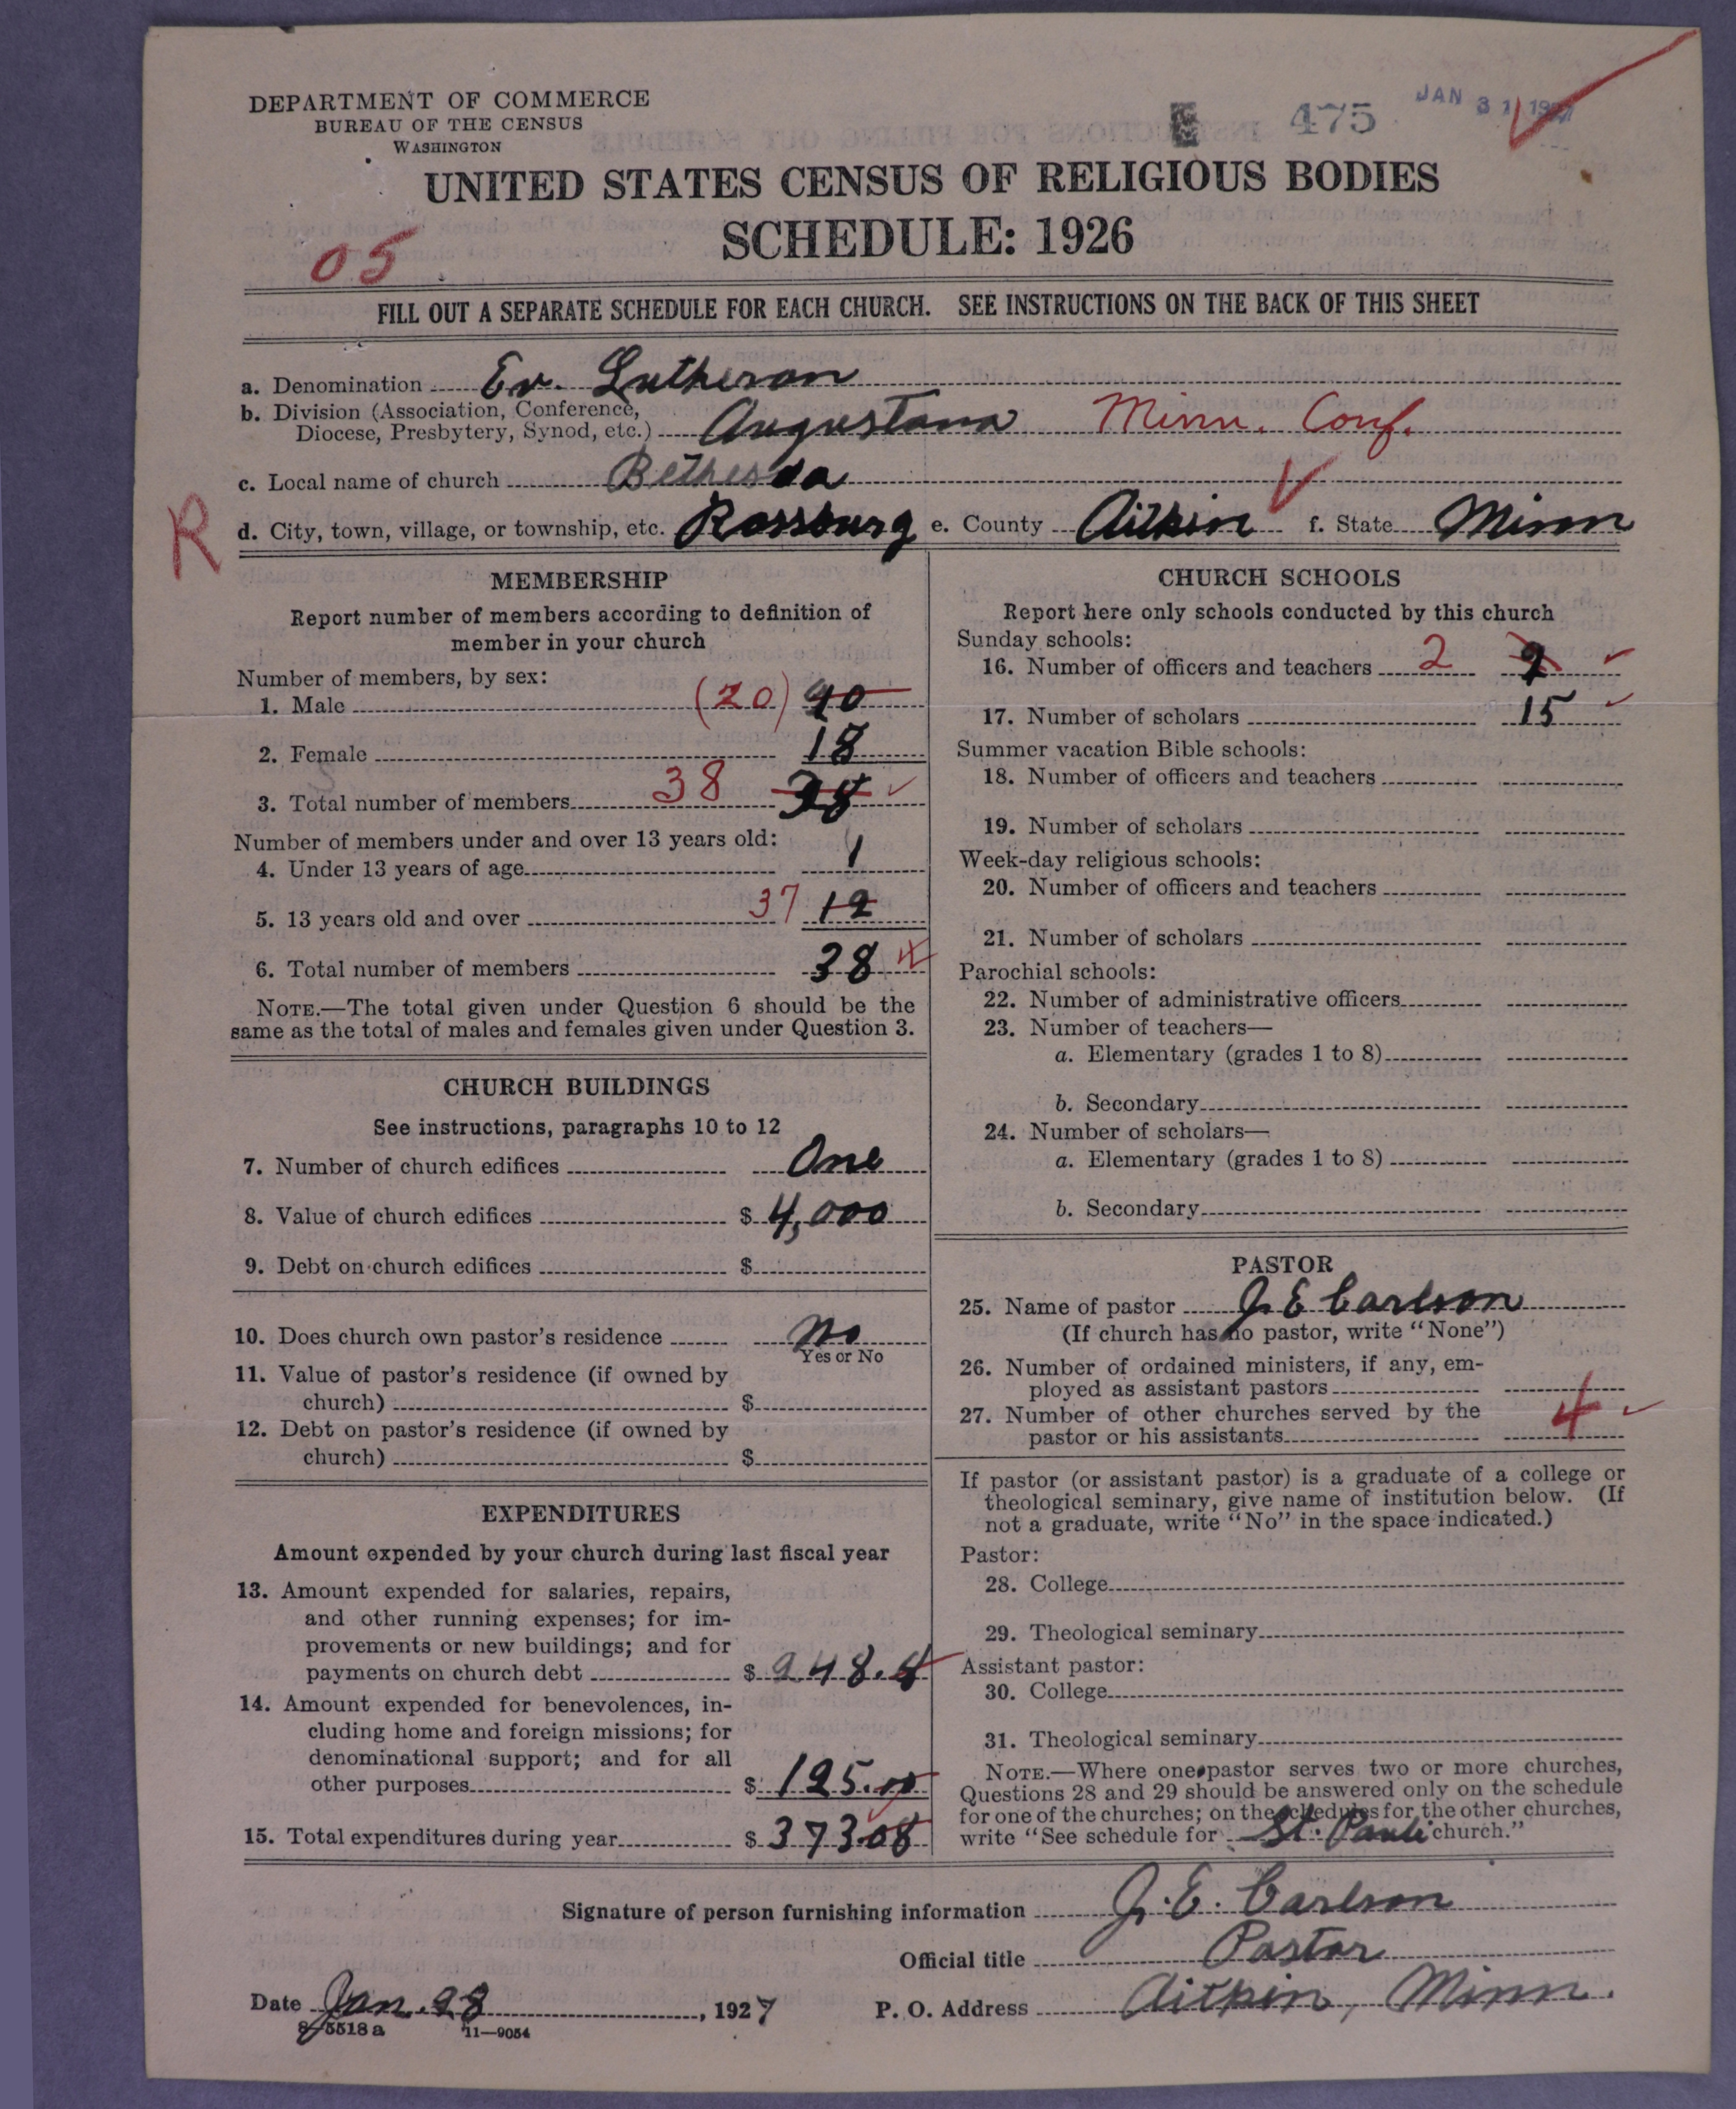 DEPARTMENT OF COMMERCE
BUREAU OF THE CENSUS
WASHINGTON
475
JAN 31 1927
UNITED STATES CENSUS OF RELIGIOUS BODIES
SCHEDULE: 1926
05
FILL OUT A SEPARATE SCHEDULE FOR EACH CHURCH. SEE INSTRUCTIONS ON THE BACK OF THIS SHEET
a. Denomination Ev. Lutheran
b. Division (Association, Conference,
Diocese, Presbytery, Synod, etc.) Augustana Minn. Conf.
c. Local name of church Bethesda
R
d. City, town, village, or township, etc. Rossburg e. County Aitkin f. State Minn
MEMBERSHIP
Report number of members according to definition of
member in your church
Number of members, by sex:
1. Male (20) 20
2. Female 18
3. Total number of members 38 38
Number of members under and over 13 years old:
4. Under 13 years of age 1
5. 13 years old and over 37 12
6. Total number of members 38
NOTE.—The total given under Question 6 should be the
same as the total of males and females given under Question 3.
CHURCH BUILDINGS
See instructions, paragraphs 10 to 12
7. Number of church edifices One
8. Value of church edifices $ 4,000
9. Debt on church edifices $
10. Does church own pastor's residence No
Yes or No
11. Value of pastor's residence (if owned by
church) $
12. Debt on pastor's residence (if owned by
church) $
EXPENDITURES
Amount expended by your church during last fiscal year
13. Amount expended for salaries, repairs,
and other running expenses; for im-
provements or new buildings; and for
payments on church debt $ 248.
14. Amount expended for benevolences, in-
cluding home and foreign missions; for
denominational support; and for all
other purposes $ 125.00
15. Total expenditures during year $ 373.08
CHURCH SCHOOLS
Report here only schools conducted by this church
Sunday schools:
16. Number of officers and teachers 2 2
17. Number of scholars 15
Summer vacation Bible schools:
18. Number of officers and teachers
19. Number of scholars
Week-day religious schools:
20. Number of officers and teachers
21. Number of scholars
Parochial schools:
22. Number of administrative officers
23. Number of teachers—
a. Elementary (grades 1 to 8)
b. Secondary
24. Number of scholars—
a. Elementary (grades 1 to 8)
b. Secondary
PASTOR
25. Name of pastor J. E Carlson
(If church has no pastor, write "None")
26. Number of ordained ministers, if any, em-
ployed as assistant pastors
27. Number of other churches served by the
pastor or his assistants 4
If pastor (or assistant pastor) is a graduate of a college or
theological seminary, give name of institution below. (If
not a graduate, write "No" in the space indicated.)
Pastor:
28. College
29. Theological seminary
Assistant pastor:
30. College
31. Theological seminary
NOTE.—Where one pastor serves two or more churches,
Questions 28 and 29 should be answered only on the schedule
for one of the churches; on the schedules for the other churches,
write "See schedule for St. Pauli church."
Signature of person furnishing information J. E. Carlson
Official title Pastor
Date Jan. 28, 1927 P. O. Address Aitkin, Minn.
8—5518 a 11—9054